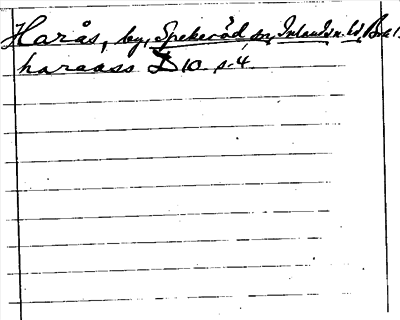 Harås, by, Spekeröd sn, Inlands n. hd, Boh l.
haraass D 10 s. 4